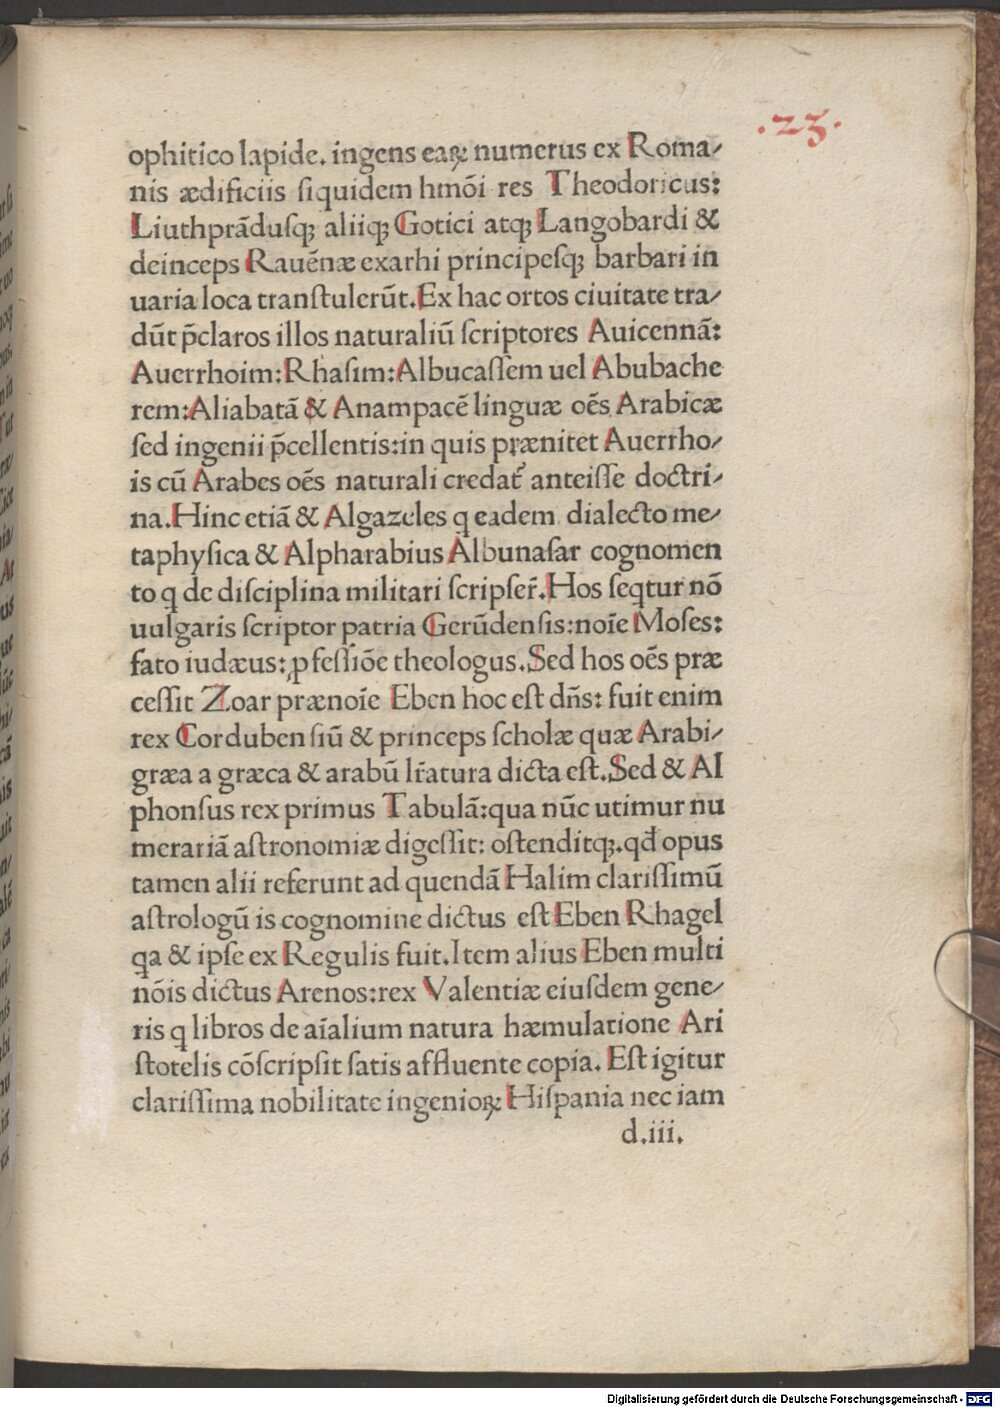 .23.
ophitico lapide. ingens eaꝝ numerus ex Roma/
nis ædificiis siquidem hmōi res Theodoricus:
Liuthprādusqꝫ aliiqꝫ Gotici atqꝫ Langobardi &
deinceps Rauēnæ exarhi principesqꝫ barbari in
uaria loca transtulerūt. Ex hac ortos ciuitate tra/
dūt p̄claros illos naturaliū scriptores Auicennā:
Auerrhoim: Rhasim: Albucassem uel Abubache
rem: Aliabatā & Anampacē linguæ oēs Arabicæ
sed ingenii p̄cellentis: in quis prænitet Auerrho/
is cū Arabes oēs naturali credat̉ anteisse doctri/
na. Hinc etiā & Algazeles q eadem dialecto me/
taphysica & Alpharabius Albunasar cognomen
to q de disciplina militari scripser̄. Hos seqtur nō
uulgaris scriptor patria Gerūdensis: noīe Moses:
fato iudæus: ꝓfessiōe theologus. Sed hos oēs præ
cessit Zoar prænoīe Eben hoc est dn̄s: fuit enim
rex Cordubensiū & princeps scholæ quæ Arabi/
græa a græca & arabū lr̄atura dicta est. Sed & Al
phonsus rex primus Tabulā: qua nūc utimur nu
merariā astronomiæ digessit: ostenditqꝫ. qđ opus
tamen alii referunt ad quendā Halim clarissimū
astrologū is cognomine dictus est Eben Rhagel
qa & ipse ex Regulis fuit. Item alius Eben multi
nōis dictus Arenos: rex Valentiæ eiusdem gene/
ris q libros de aīalium natura hæmulatione Ari
stotelis cōscripsit satis affluente copia. Est igitur
clarissima nobilitate ingenioꝝ Hispania nec iam
d.iii.
Digitalisierung gefördert durch die Deutsche Forschungsgemeinschaft - DFG